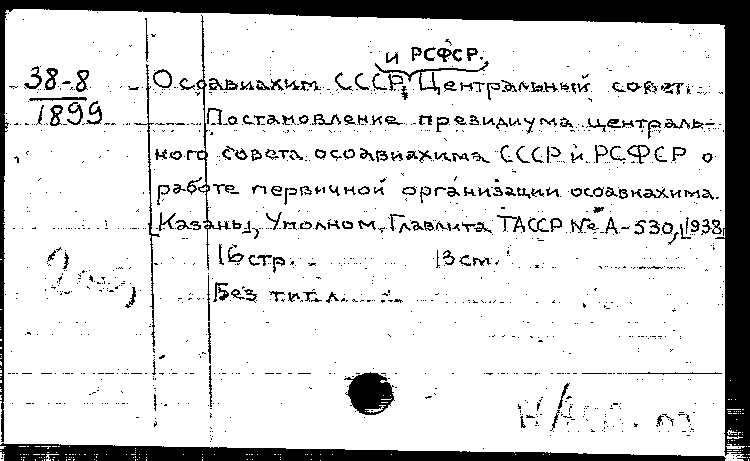 и РСФСР.
38-8
1899
Осоавиахим СССР, Центральный совет.
Постановление президиума централь-
ного совета осоавиахима СССР и РСФСР о
работе первичной организации осоавиахима.
[Казань], Уполном. Главлита ТАССР № А-530, [1938]
16 стр. 13 см.
Без тит. л.